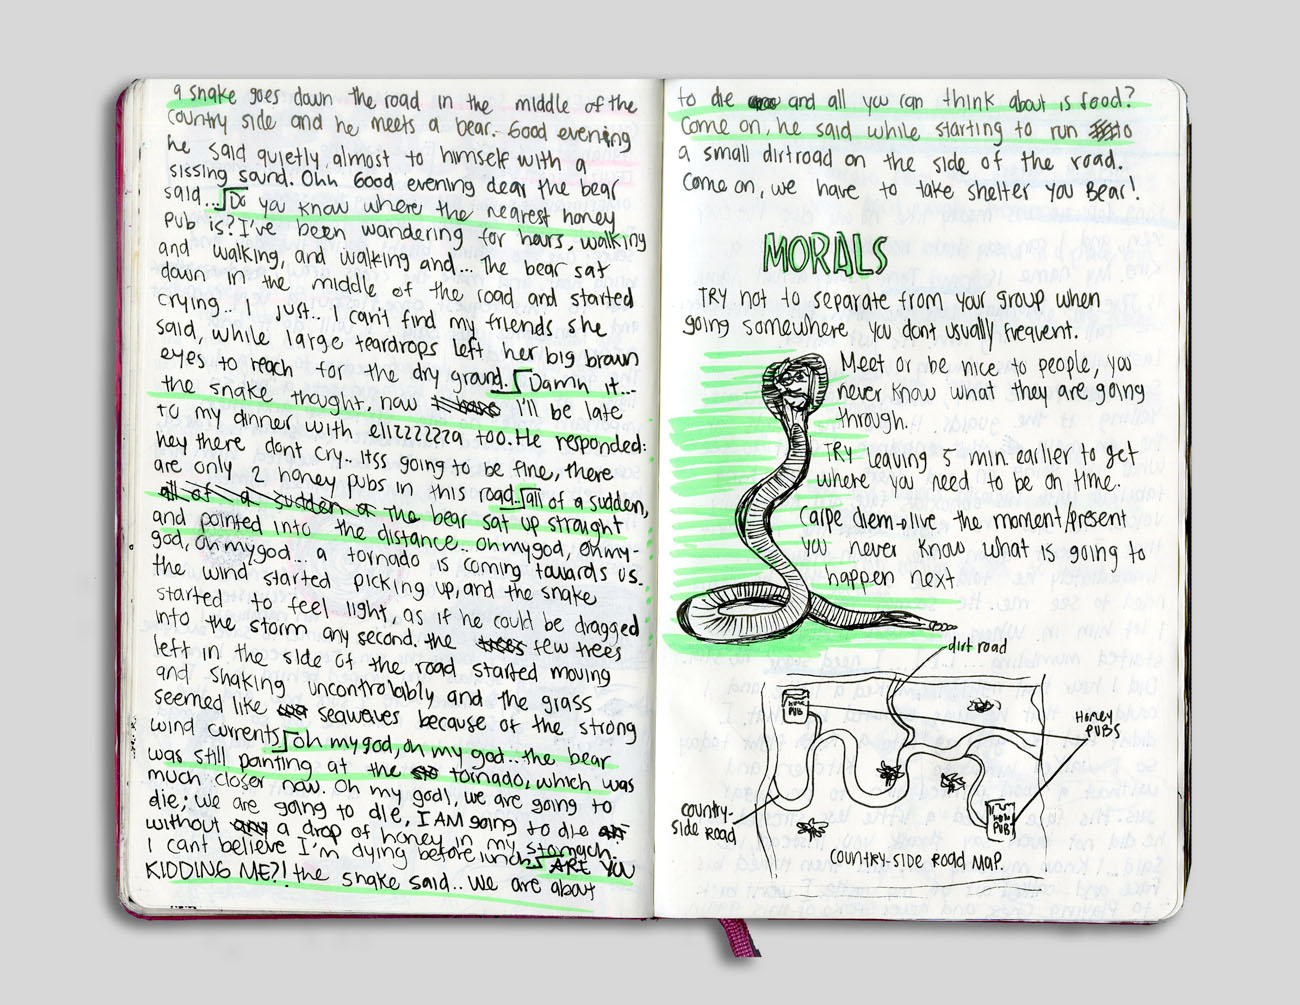 a snake goes down the road in the middle of the
country side and he meets a bear. Good evening
he said quietly, almost to himself with a
sissing sound. Ohh Good evening dear the bear
said.. Do you know where the nearest honey
pub is? I've been wandering for hours, walking
and walking, and walking and... the bear sat
down in the middle of the road and started
crying.. I just.. I can't find my friends she
said, while large teardrops left her big brown
eyes to reach for the dry ground. Damn it...
the snake thought, now I'll be late
to my dinner with elizzzzzza too. He responded:
hey there dont cry.. itss going to be fine, there
are only 2 honey pubs in this road.. all of a sudden,
all of a sudden the bear sat up straight
and pointed into the distance.. ohmygod, ohmy-
god, ohmygod... a tornado is coming towards us.
the wind started picking up, and the snake
started to feel light, as if he could be dragged
into the storm any second. the trees few trees
left in the side of the road started moving
and shaking uncontrolably and the grass
seemed like seaweives because of the strong
wind currents. oh my god, oh my god... the bear
was still panting at the tornado, which was
much closer now. Oh my god!, we are going to
die; we are going to die, I AM going to die
without a drop of honey in my stomach.
I cant believe I'm dying before lunch. ARE YOU
KIDDING ME?! the snake said.. We are about
to die and all you can think about is food?
Come on, he said while starting to run to
a small dirtroad on the side of the road.
Come on, we have to take shelter you Bear!
MORALS
TRY not to separate from your group when
going somewhere you dont usually frequent.
Meet or be nice to people, you
never know what they are going
through.
TRY leaving 5 min. earlier to get
where you need to be on time.
Carpe diem → live the moment/present
you never know what is going to
happen next.
dirt road
HONEY
PUB
HONEY
PUBS
HONEY
PUB
COUNTRY-
SIDE ROAD
COUNTRY-SIDE ROAD MAP.